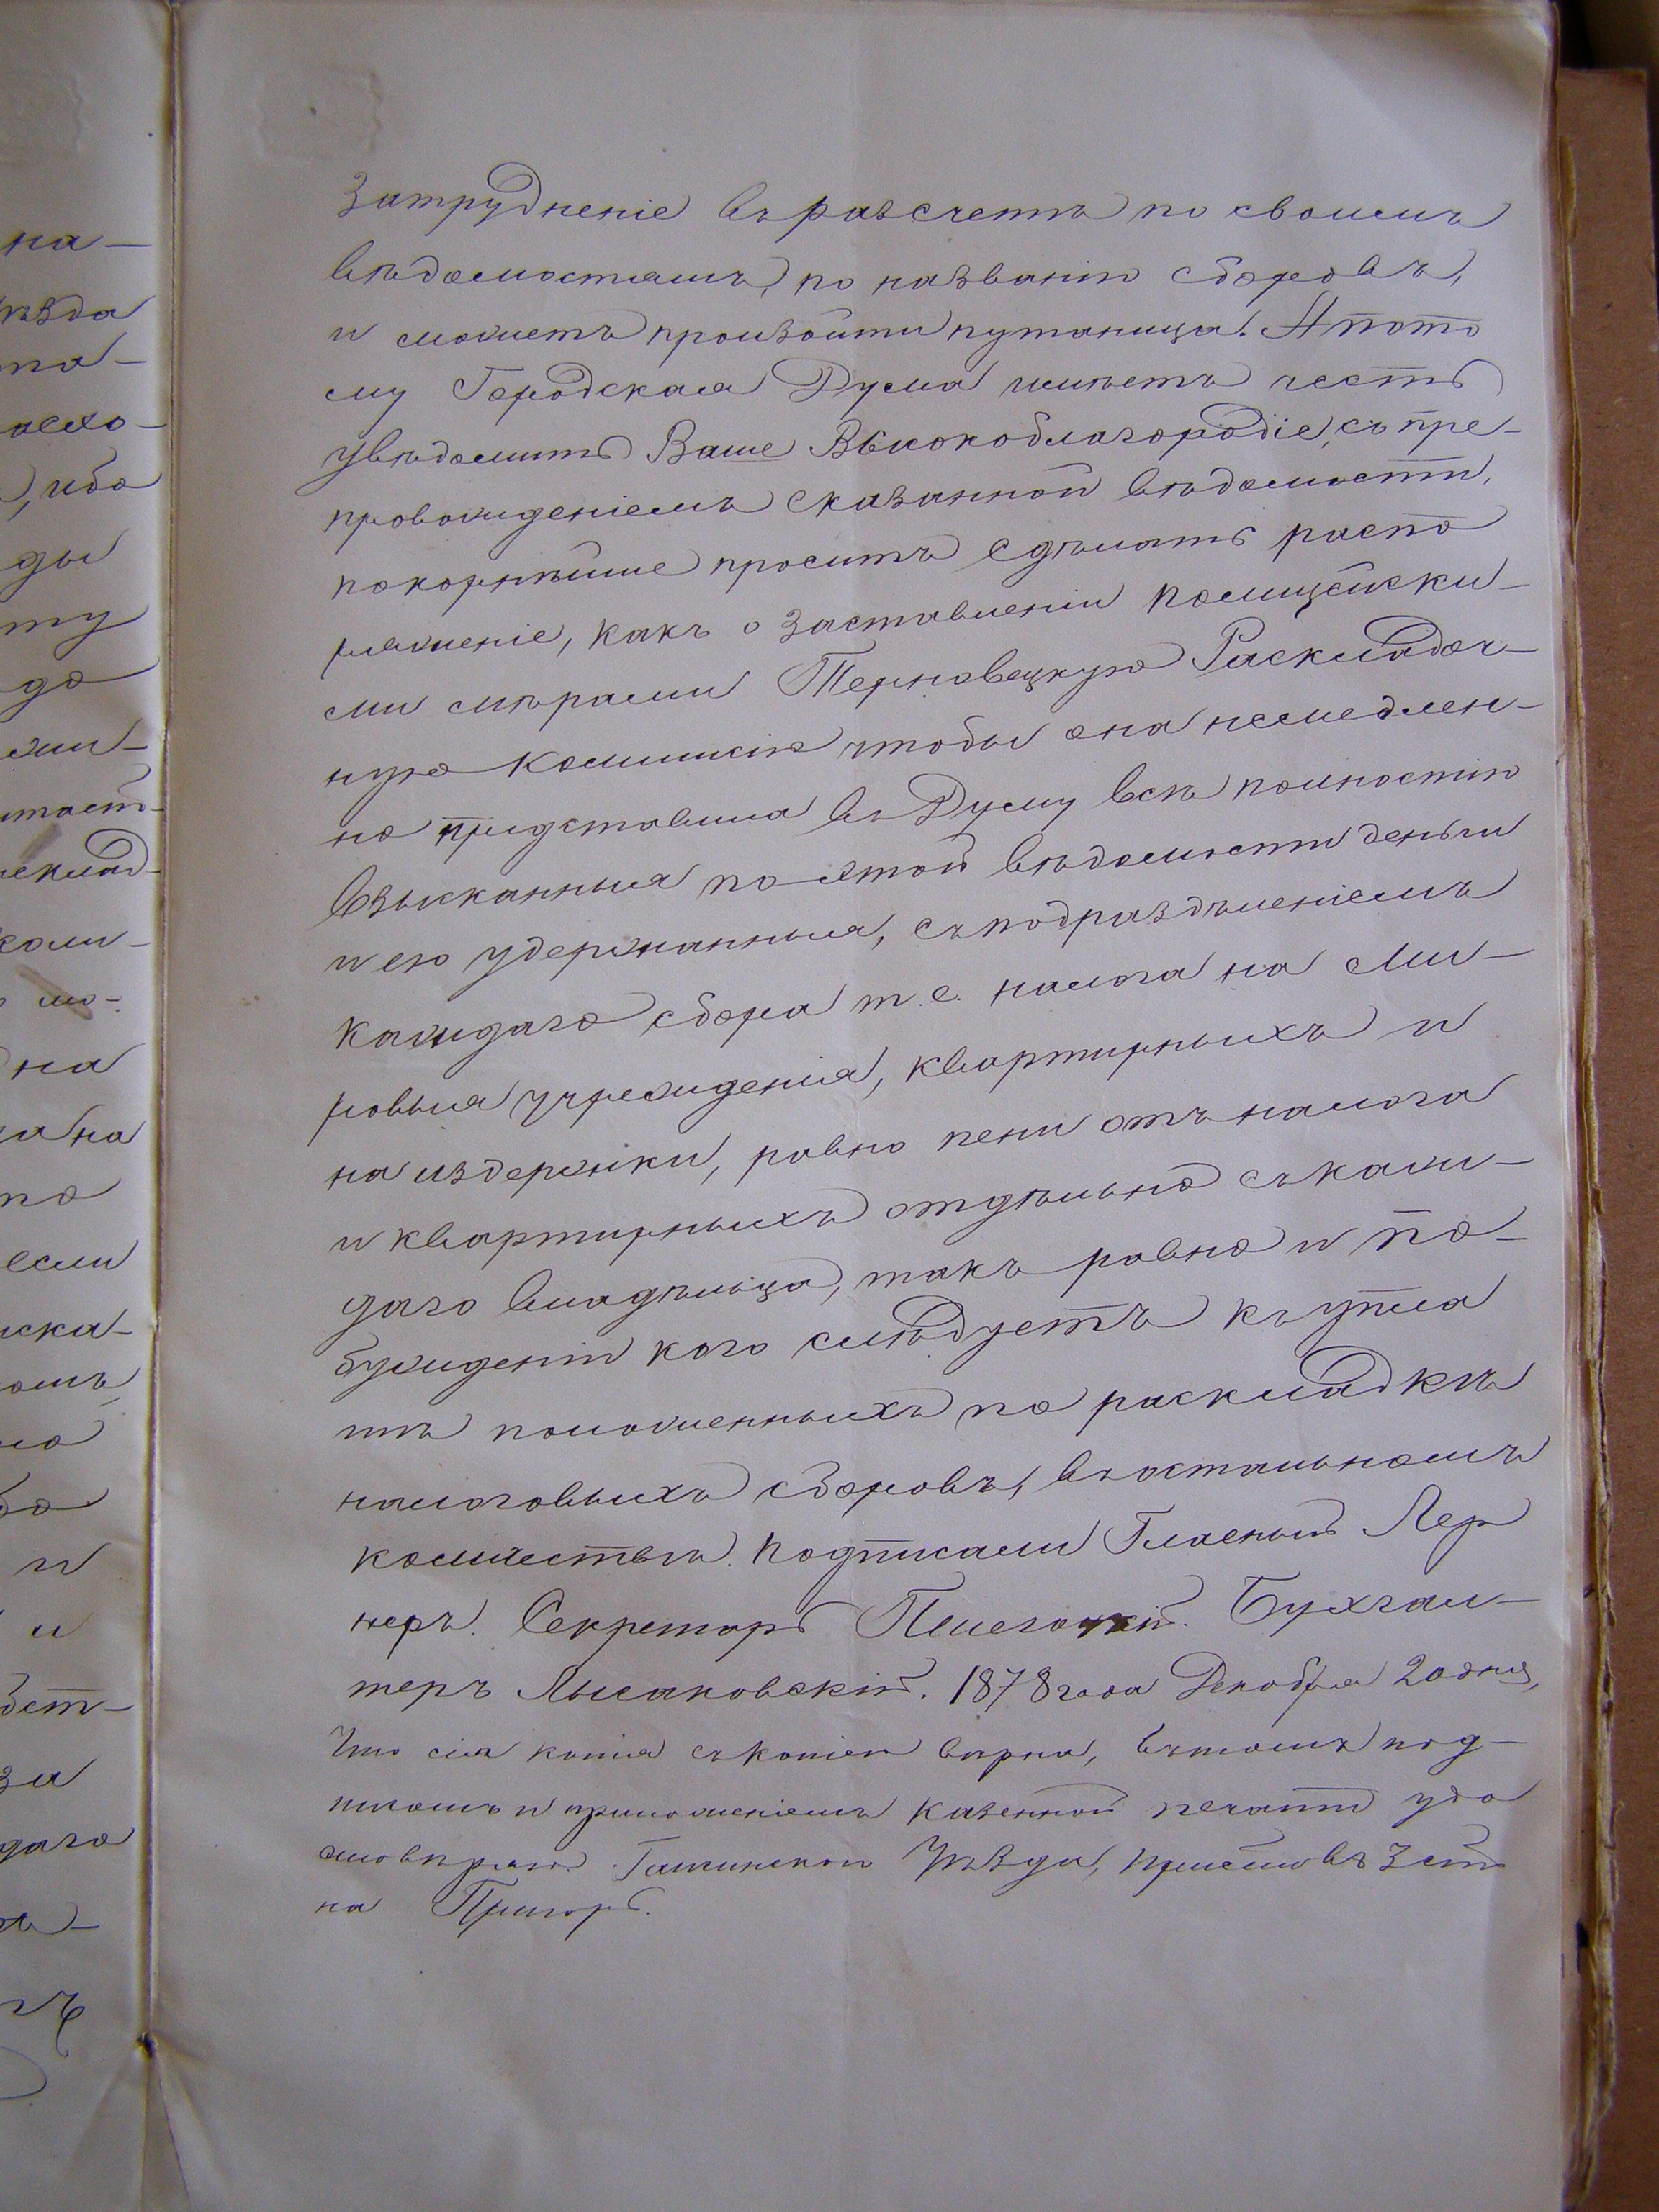 затрудненіе въ разсчетѣ по своимъ
вѣдомостямъ, по названію сборовъ,
и можетъ произойти путаница. А пото
му Городская Дума имѣетъ честь
увѣдомить Ваше Высокоблагородіе, съ пре-
провожденіемъ сказанной вѣдомости,
покорнѣйше проситъ сдѣлать распо
ряженіе, какъ о заставленіи полицейски-
ми мѣрами Терновецкую Раскладоч-
ную Коммисію чтобы она немедлен-
но представила въ Думу всѣ полностію
взысканныя по этой вѣдомости деньги
и ею удержанныя, съ подраздѣленіемъ
каждаго сбора т. е. налога на Ми-
ровыя учрежденія, квартирныхъ и
на издержки, равно пени отъ налога
и квартирныхъ отдѣльно съ каж-
даго владѣльца, такъ равно и по-
бужденіи кого слѣдуетъ къ упла
тѣ положенныхъ по раскладкѣ
налоговыхъ сборовъ, въ остальномъ
количествѣ. Подписали Гласный Лер
неръ. Секретарь Бухгал-
теръ Лысаковскій. 1878 года Декабря 20 дня,
Что сія копія съ копіею вѣрна, въ томъ под-
писомъ и приложеніемъ казенной печати удо
стовѣряю. Уѣзда, Приставъ 3 ст
на
на-
ѣзда
по-
, ибо
ды
ту
до
на
на
по
если
иска-
но
и
и
за
даго